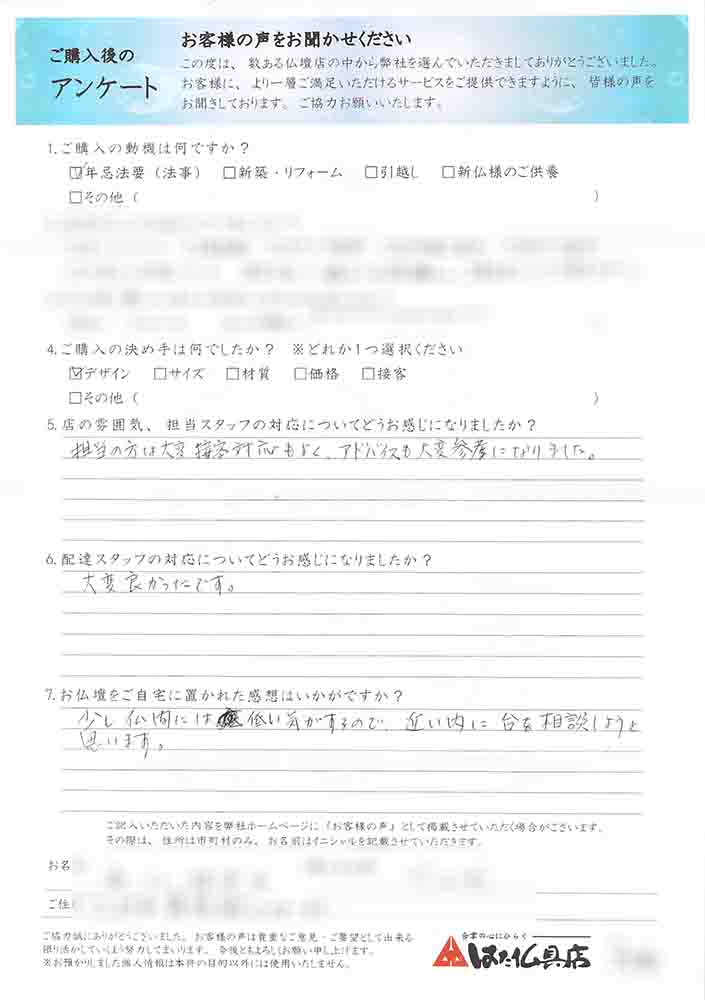 ご購入後の
アンケート
お客様の声をお聞かせください
この度は、数ある仏壇店の中から弊社を選んでいただきましてありがとうございました。
お客様に、より一層ご満足いただけるサービスをご提供できますように、皆様の声を
お聞きしております。ご協力お願いいたします。
1.ご購入の動機は何ですか？
☑年忌法要（法事） □新築・リフォーム □引越し □新仏様のご供養
□その他（ ）
4.ご購入の決め手は何でしたか？ ※どれか1つ選択ください
☑デザイン □サイズ □材質 □価格 □接客
□その他（ ）
5.店の雰囲気、担当スタッフの対応についてどうお感じになりましたか？
担当の方は大変接客対応もよく、アドバイスも大変参考になりました。
6.配達スタッフの対応についてどうお感じになりましたか？
大変良かったです。
7.お仏壇をご自宅に置かれた感想はいかがですか？
少し仏間には低い気がするので、近い内に台を相談しようと
思います。
ご記入いただいた内容を弊社ホームページに『お客様の声』として掲載させていただく場合がございます。
その際は、住所は市町村のみ、お名前はイニシャルを記載させていただきます。
お名
ご住
ご協力誠にありがとうございました。お客様の声は貴重なご意見・ご要望として出来る
限り活かしていくよう努力してまいります。今後ともよろしくお願い申し上げます。
※お預かりしました個人情報は本件の目的以外には使用いたしません。
合掌の心にひらく
はた仏具店